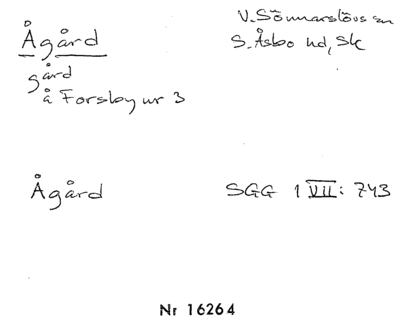 Ågård
V. Sönnarslövs sn
S. Åsbo hd, Sk
gård
å Forsby nr 3
Ågård
SGG 1 VII: 743
Nr 16264